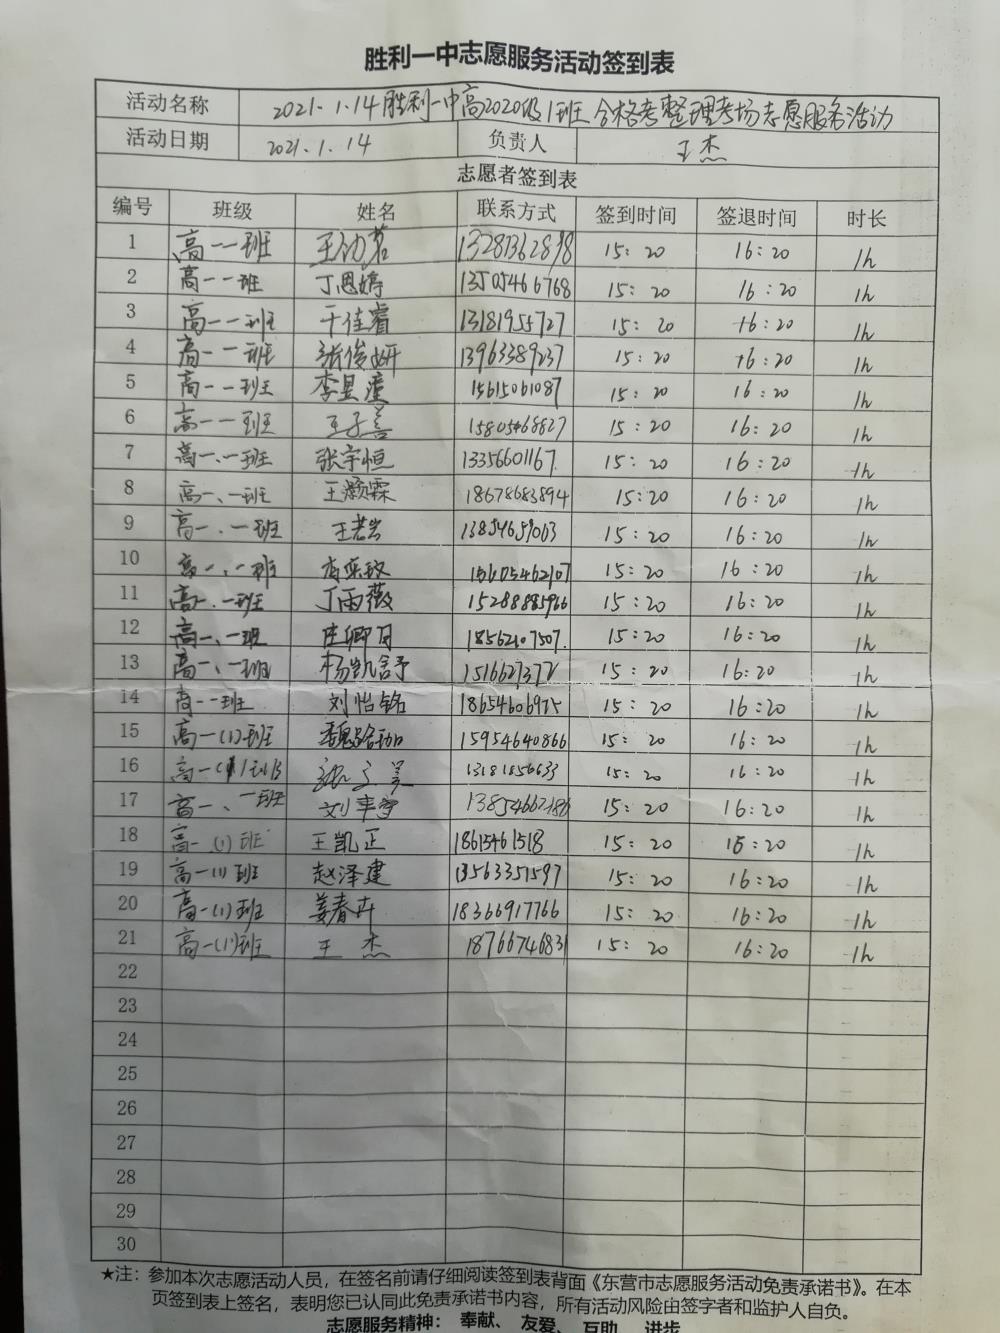 胜利一中志愿服务活动签到表
活动名称 2021.1.14胜利一中高2020级1班合格考整理考场志愿服务活动
活动日期 2021.1.14 负责人 王杰
志愿者签到表
编号 班级 姓名 联系方式 签到时间 签退时间 时长
1 高一一班 13281362898 15:20 16:20 1h
2 高一一班 丁恩婷 13505466768 15:20 16:20 1h
3 高一一班 于佳睿 13181955727 15:20 16:20 1h
4 高一一班 张俊妍 13963389237 15:20 16:20 1h
5 高一一班 李昱潼 15615061087 15:20 16:20 1h
6 高一一班 王子善 15805468827 15:20 16:20 1h
7 高一、一班 张宇恒 13356601167. 15:20 16:20 1h
8 高一、一班 王灏霖 18678683894 15:20 16:20 1h
9 高一、一班 王若岩 13854659063 15:20 16:20 1h
10 高一、一班 15605462107 15:20 16:20 1h
11 高一、一班 丁雨薇 15288885966 15:20 16:20 1h
12 高一、一班 庄卿月 18562107507. 15:20 16:20 1h
13 高一、一班 杨凯舒 1516627372 15:20 16:20 1h
14 高一一班 刘怡铭 18654606975 15:20 16:20 1h
15 高一(1)班 15954640866 15:20 16:20 1h
16 高一(1)班 13181856633 15:20 16:20 1h
17 高一、一班 15:20 16:20 1h
18 高一(1)班 王凯正 18615461518 15:20 16:20 1h
19 高一(1)班 赵泽建 13563351597 15:20 16:20 1h
20 高一(1)班 姜春卉 18366917766 15:20 16:20 1h
21 高一(1)班 王杰 18766746831 15:20 16:20 1h
22
23
24
25
26
27
28
29
30
★注:参加本次志愿活动人员,在签名前请仔细阅读签到表背面《东营市志愿服务活动免责承诺书》。在本
页签到表上签名,表明您已认同此免责承诺书内容,所有活动风险由签字者和监护人自负。
志愿服务精神: 奉献、 友爱、 互助、 进步